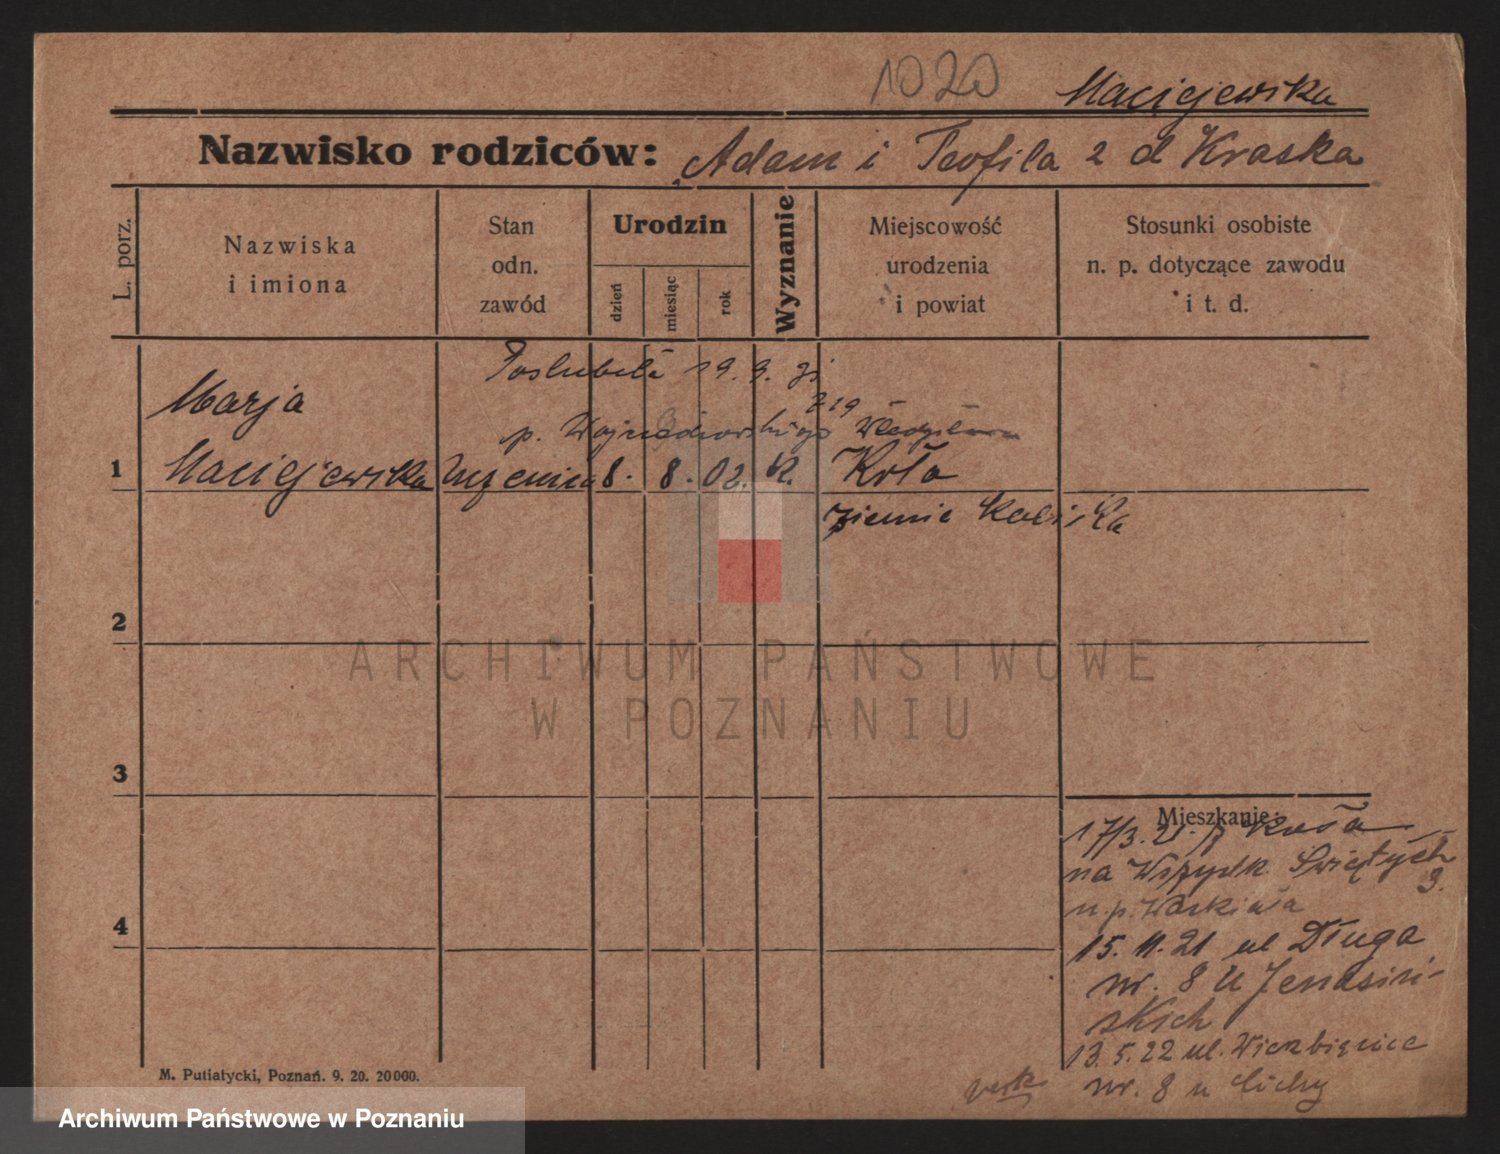 1020
Maciejewska
Nazwisko rodziców: Adam i Teofila 2 d Kraska
L. porz.
Nazwiska
i imiona
Stan
odn.
zawód
Urodzin
dzień
miesiąc
rok
Wyznanie
Miejscowość
urodzenia
i powiat
Stosunki osobiste
n. p. dotyczące zawodu
i t. d.
Poslubiła 19. 9.
Marja
p.
1 Maciejewska 8. 8. 02. K. Koło
ziemie Kaliska
2
ARCHIWUM PAŃSTWOWE
W POZNANIU
3
Mieszkanie:
17/3. 21. z Koła
na Wszystk. Świętych
3.
u p.
4
15. 11. 21 ul Długa
nr. 8 u Jerasiń-
skich
13. 5. 22 ul. Wierzbięcice
nr. 8 u Cichy
M. Putiatycki, Poznań. 9. 20. 20000.
Archiwum Państwowe w Poznaniu